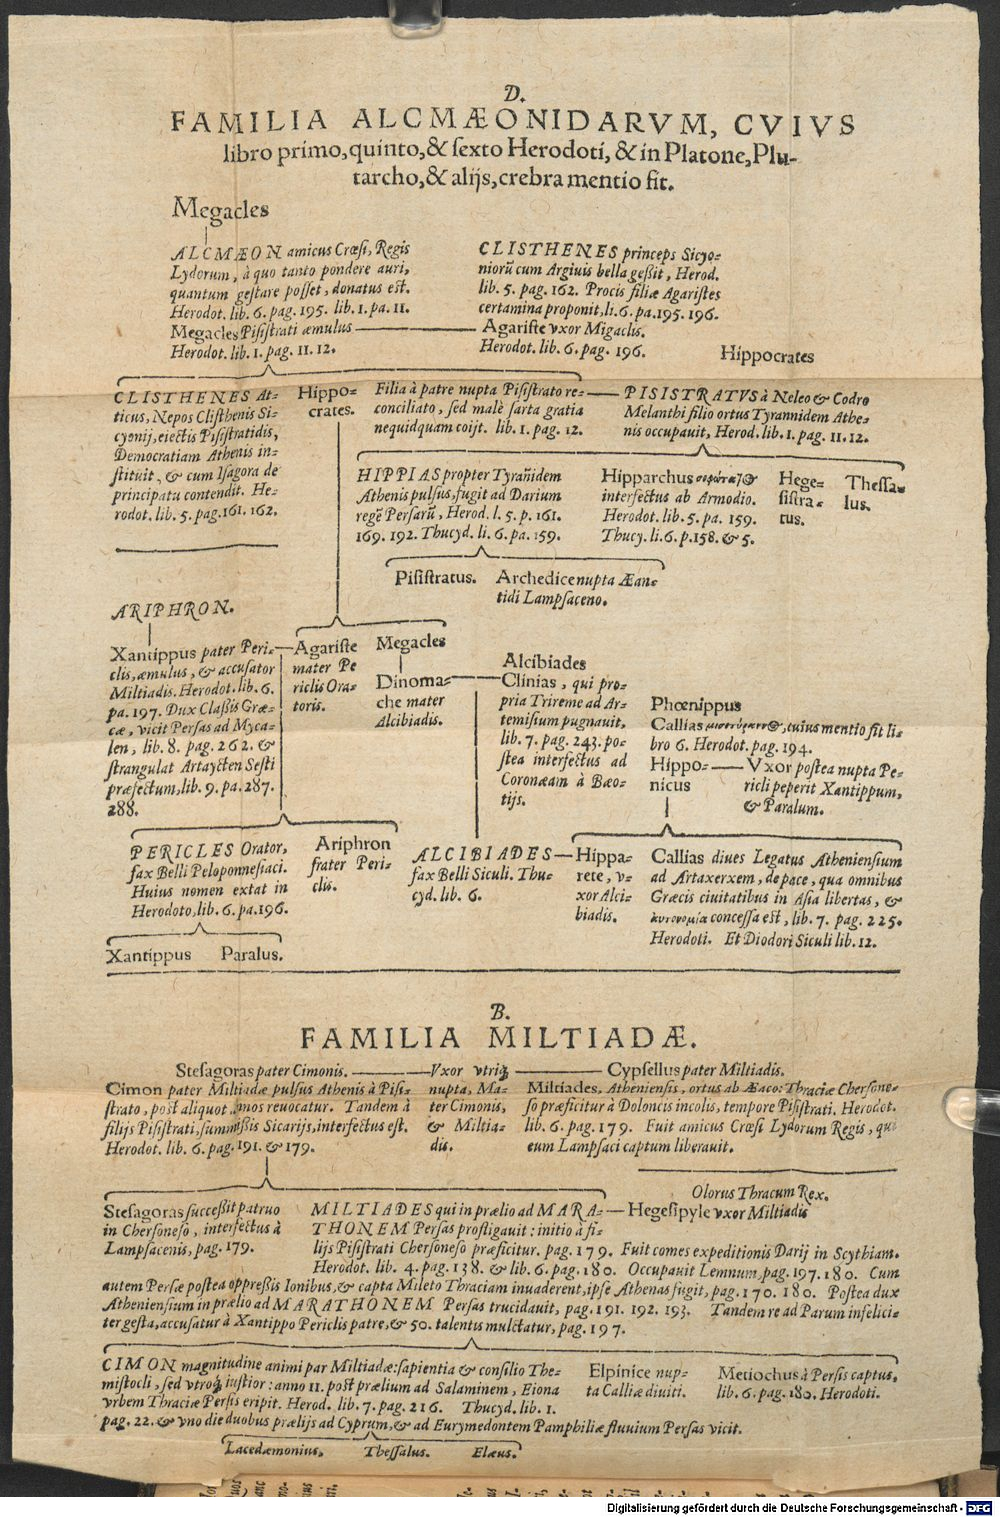 D.
FAMILIA ALCMÆONIDARVM, CVIVS
libro primo, quinto, & sexto Herodoti, & in Platone, Plu-
tarcho, & alijs, crebra mentio fit.
Megacles
ALCMÆON amicus Crœsi, Regis
Lydorum, à quo tanto pondere auri,
quantum gestare posset, donatus est.
Herodot. lib. 6. pag. 195. lib. 1. pa. 11.
Megacles Pisistrati æmulus
Herodot. lib. 1. pag. 11. 12.
CLISTHENES princeps Sicyo-
niorũ cum Argiuis bella geßit, Herod.
lib. 5. pag. 162. Procis filiæ Agaristes
certamina proponit, li. 6. pa. 195. 196.
Agariste vxor Migaclis.
Herodot. lib. 6. pag. 196.
Hippocrates
CLISTHENES At-
ticus, Nepos Clisthenis Si-
cyonij, eiectis Pisistratidis,
Democratiam Athenis in-
stituit, & cum Isagora de
principatu contendit. He-
rodot. lib. 5. pag. 161. 162.
Hippo-
crates.
Filia à patre nupta Pisistrato re-
conciliato, sed malè sarta gratia
nequidquam coijt. lib. 1. pag. 12.
PISISTRATVS à Neleo & Codro
Melanthi filio ortus Tyrannidem Athe-
nis occupauit, Herod. lib. 1. pag. 11. 12.
HIPPIAS propter Tyrañidem
Athenis pulsus, fugit ad Darium
regẽ Persarũ, Herod. l. 5. p. 161.
169. 192. Thucyd. li. 6. pa. 159.
Hipparchus
interfectus ab Armodio.
Herodot. lib. 5. pa. 159.
Thucy. li. 6. p. 158. & 5.
Hege-
sistra-
tus.
Thessa-
lus.
Pisistratus.
Archedice nupta Æan-
tidi Lampsaceno.
ARIPHRON.
Xantippus pater Peri-
clis, æmulus, & accusator
Miltiadis. Herodot. lib. 6.
pa. 197. Dux Claßis Græ-
cæ, vicit Persas ad Myca-
len, lib. 8. pag. 262. &
strangulat Artaycten Sesti
præfectum, lib. 9. pa. 287.
288.
Agariste
mater Pe
riclis Ora-
toris.
Megacles
Dinoma-
che mater
Alcibiadis.
Alcibiades
Clinias, qui pro-
pria Trireme ad Ar-
temisium pugnauit,
lib. 7. pag. 243. po-
stea interfectus ad
Coronæam à Bæo-
tijs.
Phœnippus
Callias cuius mentio fit li-
bro 6. Herodot. pag. 194.
Hippo-
nicus
Vxor postea nupta Pe-
ricli peperit Xantippum,
& Paralum.
PERICLES Orator,
fax Belli Peloponnesiaci.
Huius nomen extat in
Herodoto, lib. 6. pa. 196.
Ariphron
frater Peri-
clis.
ALCIBIADES
fax Belli Siculi. Thu-
cyd. lib. 6.
Hippa-
rete, v-
xor Alci-
biadis.
Callias diues Legatus Atheniensium
ad Artaxerxem, de pace, qua omnibus
Græcis ciuitatibus in Asia libertas, &
ἀυτονομία concessa est, lib. 7. pag. 225.
Herodoti. Et Diodori Siculi lib. 12.
Xantippus
Paralus.
B.
FAMILIA MILTIADÆ.
Stesagoras pater Cimonis.
Cimon pater Miltiadæ pulsus Athenis à Pisi-
strato, post aliquot annos reuocatur. Tandem à
filijs Pisistrati, summißis Sicarijs, interfectus est.
Herodot. lib. 6. pag. 191. & 179.
Vxor vtriqꝫ
nupta, Ma-
ter Cimonis,
& Miltia-
dis.
Cypsellus pater Miltiadis.
Miltiades, Atheniensis, ortus ab Æaco: Thraciæ Cherssone-
so præficitur à Doloncis incolis, tempore Pisistrati. Herodot.
lib. 6. pag. 179. Fuit amicus Crœsi Lydorum Regis, qui
eum Lampsaci captum liberauit.
Stesagoras succeßit patruo
in Chersoneso, interfectus à
Lampsacenis, pag. 179.
Olorus Thracum Rex.
MILTIADES qui in prælio ad MARA-
Hegesipyle vxor Miltiadis
THONEM Persas profligauit: initio à fi-
lijs Pisistrati Chersoneso præficitur. pag. 179. Fuit comes expeditionis Darij in Scythiam.
Herodot. lib. 4. pag. 138. & lib. 6. pag. 180. Occupauit Lemnum, pag. 197. 180. Cum
autem Persæ postea oppreßis Ionibus, & capta Mileto Thraciam inuaderent, ipse Athenas fugit, pag. 170. 180. Postea dux
Atheniensium in prælio ad MARATHONEM Persas trucidauit, pag. 191. 192. 193. Tandem re ad Parum infelici-
ter gesta, accusatur à Xantippo Periclis patre, & 50. talentis mulctatur, pag. 197.
CIMON magnitudine animi par Miltiadæ: sapientia & consilio The-
mistocli, sed vtroqꝫ iustior: anno 11. post prælium ad Salaminem, Eiona
vrbem Thraciæ Persis eripit. Herod. lib. 7. pag. 216. Thucyd. lib. 1.
pag. 22. & vno die duobus prælijs ad Cyprum, & ad Eurymedontem Pamphiliæ fluuium Persas vicit.
Elpinice nup-
ta Calliæ diuiti.
Metiochus à Persis captus,
lib. 6. pag. 180. Herodoti.
Lacedæmonius.
Thessalus.
Elæus.
Digitalisierung gefördert durch die Deutsche Forschungsgemeinschaft - DFG